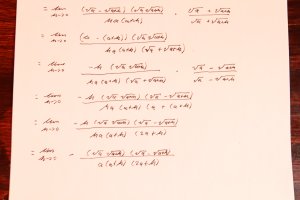 = lim h→0 (√a − √a+h) (√a √a+h) / h a (a+h) · √a + √a+h / √a + √a+h
= lim h→0 (a − (a+h)) (√a √a+h) / h a (a+h) (√a + √a+h)
= lim h→0 −h (√a √a+h) / h a (a+h) (√a + √a+h) · √a − √a+h / √a − √a+h
= lim h→0 −h (√a √a+h) (√a − √a+h) / h a (a+h) (a + (a+h))
= lim h→0 −h (√a √a+h) (√a − √a+h) / h a (a+h) (2a+h)
= lim h→0 − (√a √a+h) (√a − √a+h) / a (a+h) (2a+h)